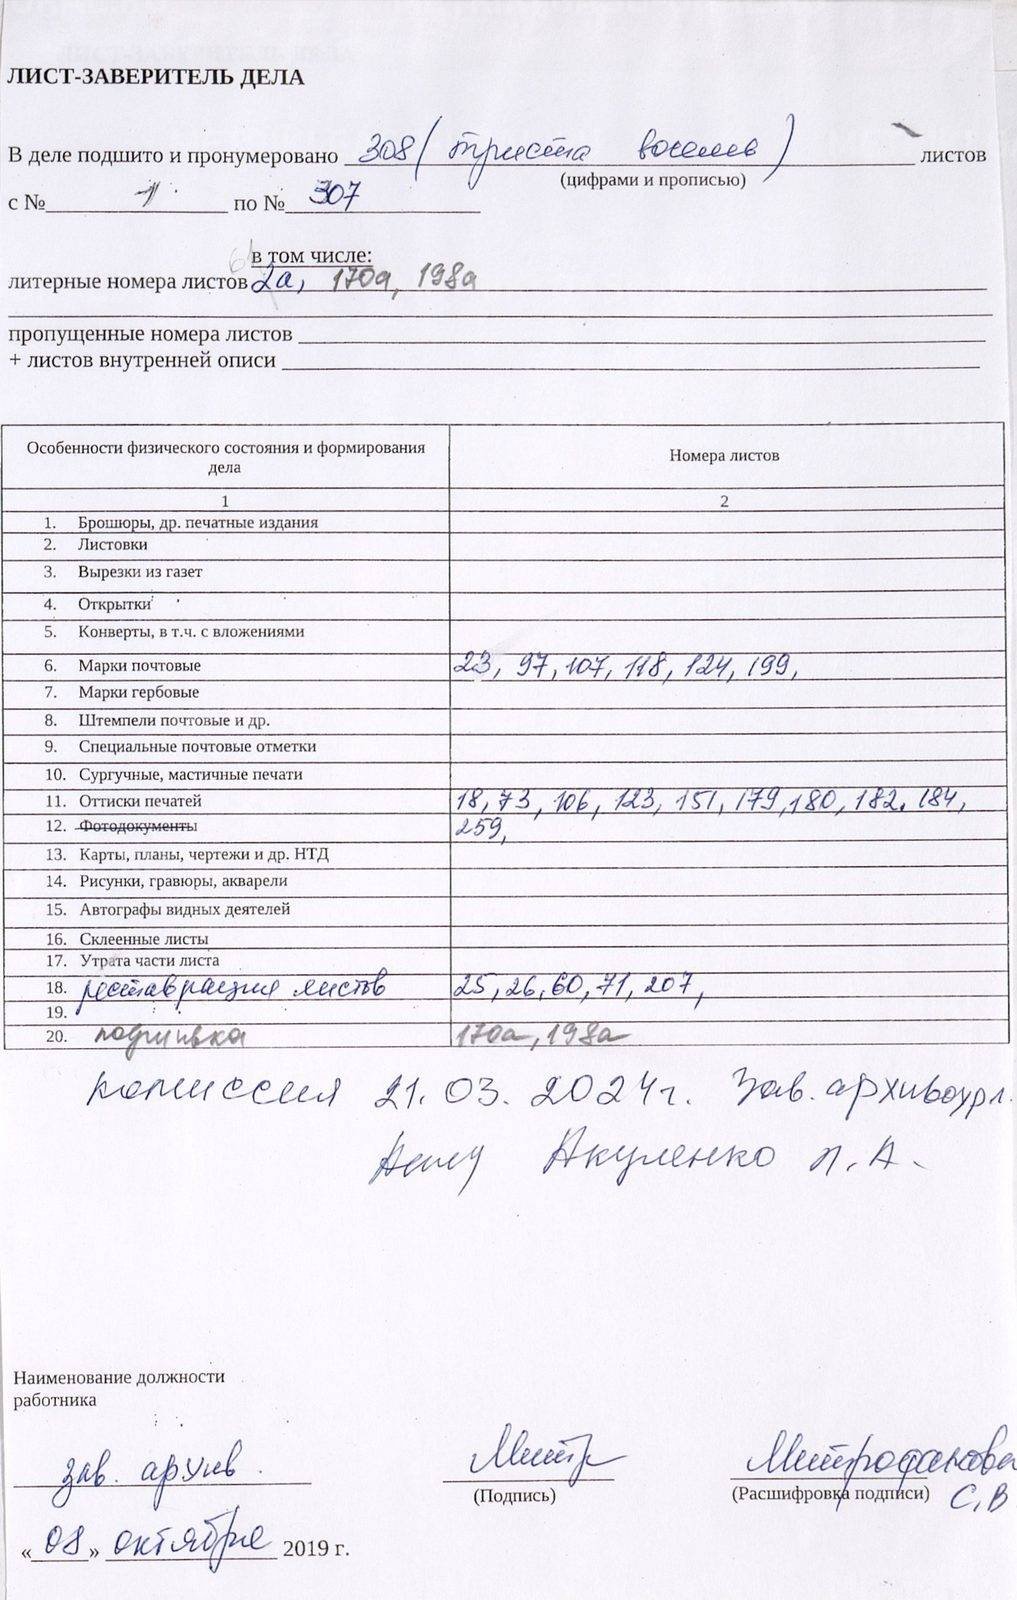 ЛИСТ-ЗАВЕРИТЕЛЬ ДЕЛА
В деле подшито и пронумеровано 308 (триста восемь) листов
(цифрами и прописью)
с № 1 по № 307
в том числе:
литерные номера листов 2а, 170а, 198а
пропущенные номера листов
+ листов внутренней описи
Особенности физического состояния и формирования дела Номера листов
1 2
1. Брошюры, др. печатные издания
2. Листовки
3. Вырезки из газет
4. Открытки
5. Конверты, в т.ч. с вложениями
6. Марки почтовые 23, 97, 107, 118, 124, 199,
7. Марки гербовые
8. Штемпели почтовые и др.
9. Специальные почтовые отметки
10. Сургучные, мастичные печати
11. Оттиски печатей 18, 73, 106, 123, 151, 179, 180, 182, 184,
12. Фотодокументы 259,
13. Карты, планы, чертежи и др. НТД
14. Рисунки, гравюры, акварели
15. Автографы видных деятелей
16. Склеенные листы
17. Утрата части листа
18. реставрация листов 25, 26, 60, 71, 207,
19.
20. подшивка 170а, 198а
комиссия 21.03.2024г. Зав. архивохр.
Акуленко Л.А.
Наименование должности
работника
зав. архив. Митр Митрофанова
(Подпись) (Расшифровка подписи) С.В
«08» октября 2019 г.